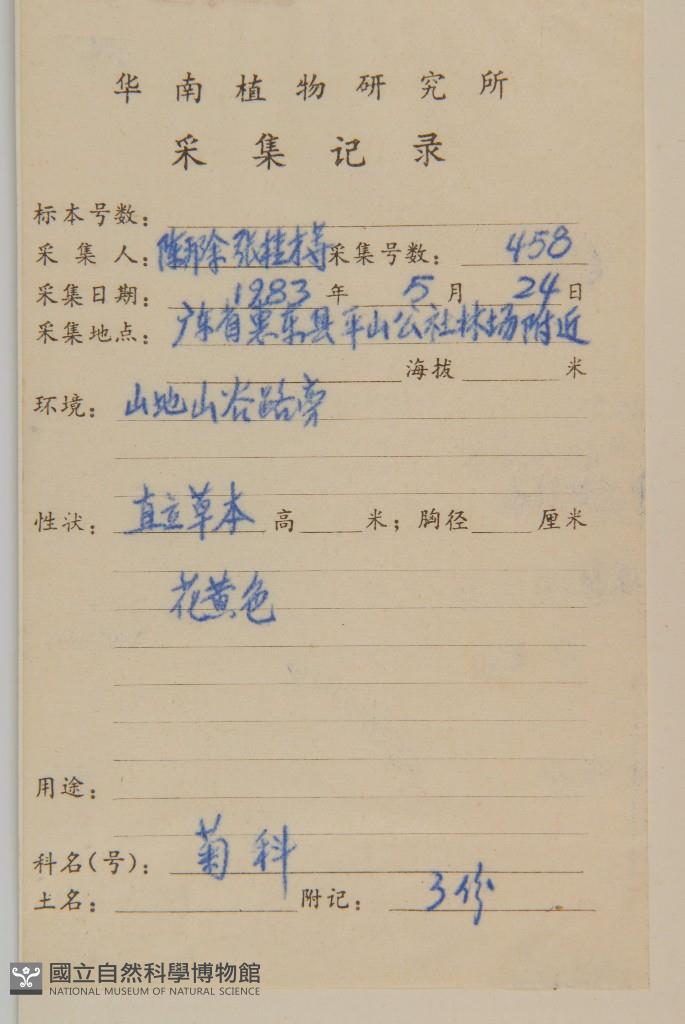 华南植物研究所
采集记录
标本号数:
采集人: 陈邦余 张桂才等 采集号数: 458
采集日期: 1983 年 5 月 24 日
采集地点: 广东省惠东县平山公社林场附近
海拔 米
环境: 山地山谷路旁
性状: 直立草本 高 米; 胸径 厘米
花黄色
用途:
科名(号): 菊科
土名: 附记: 3份
國立自然科學博物館
NATIONAL MUSEUM OF NATURAL SCIENCE